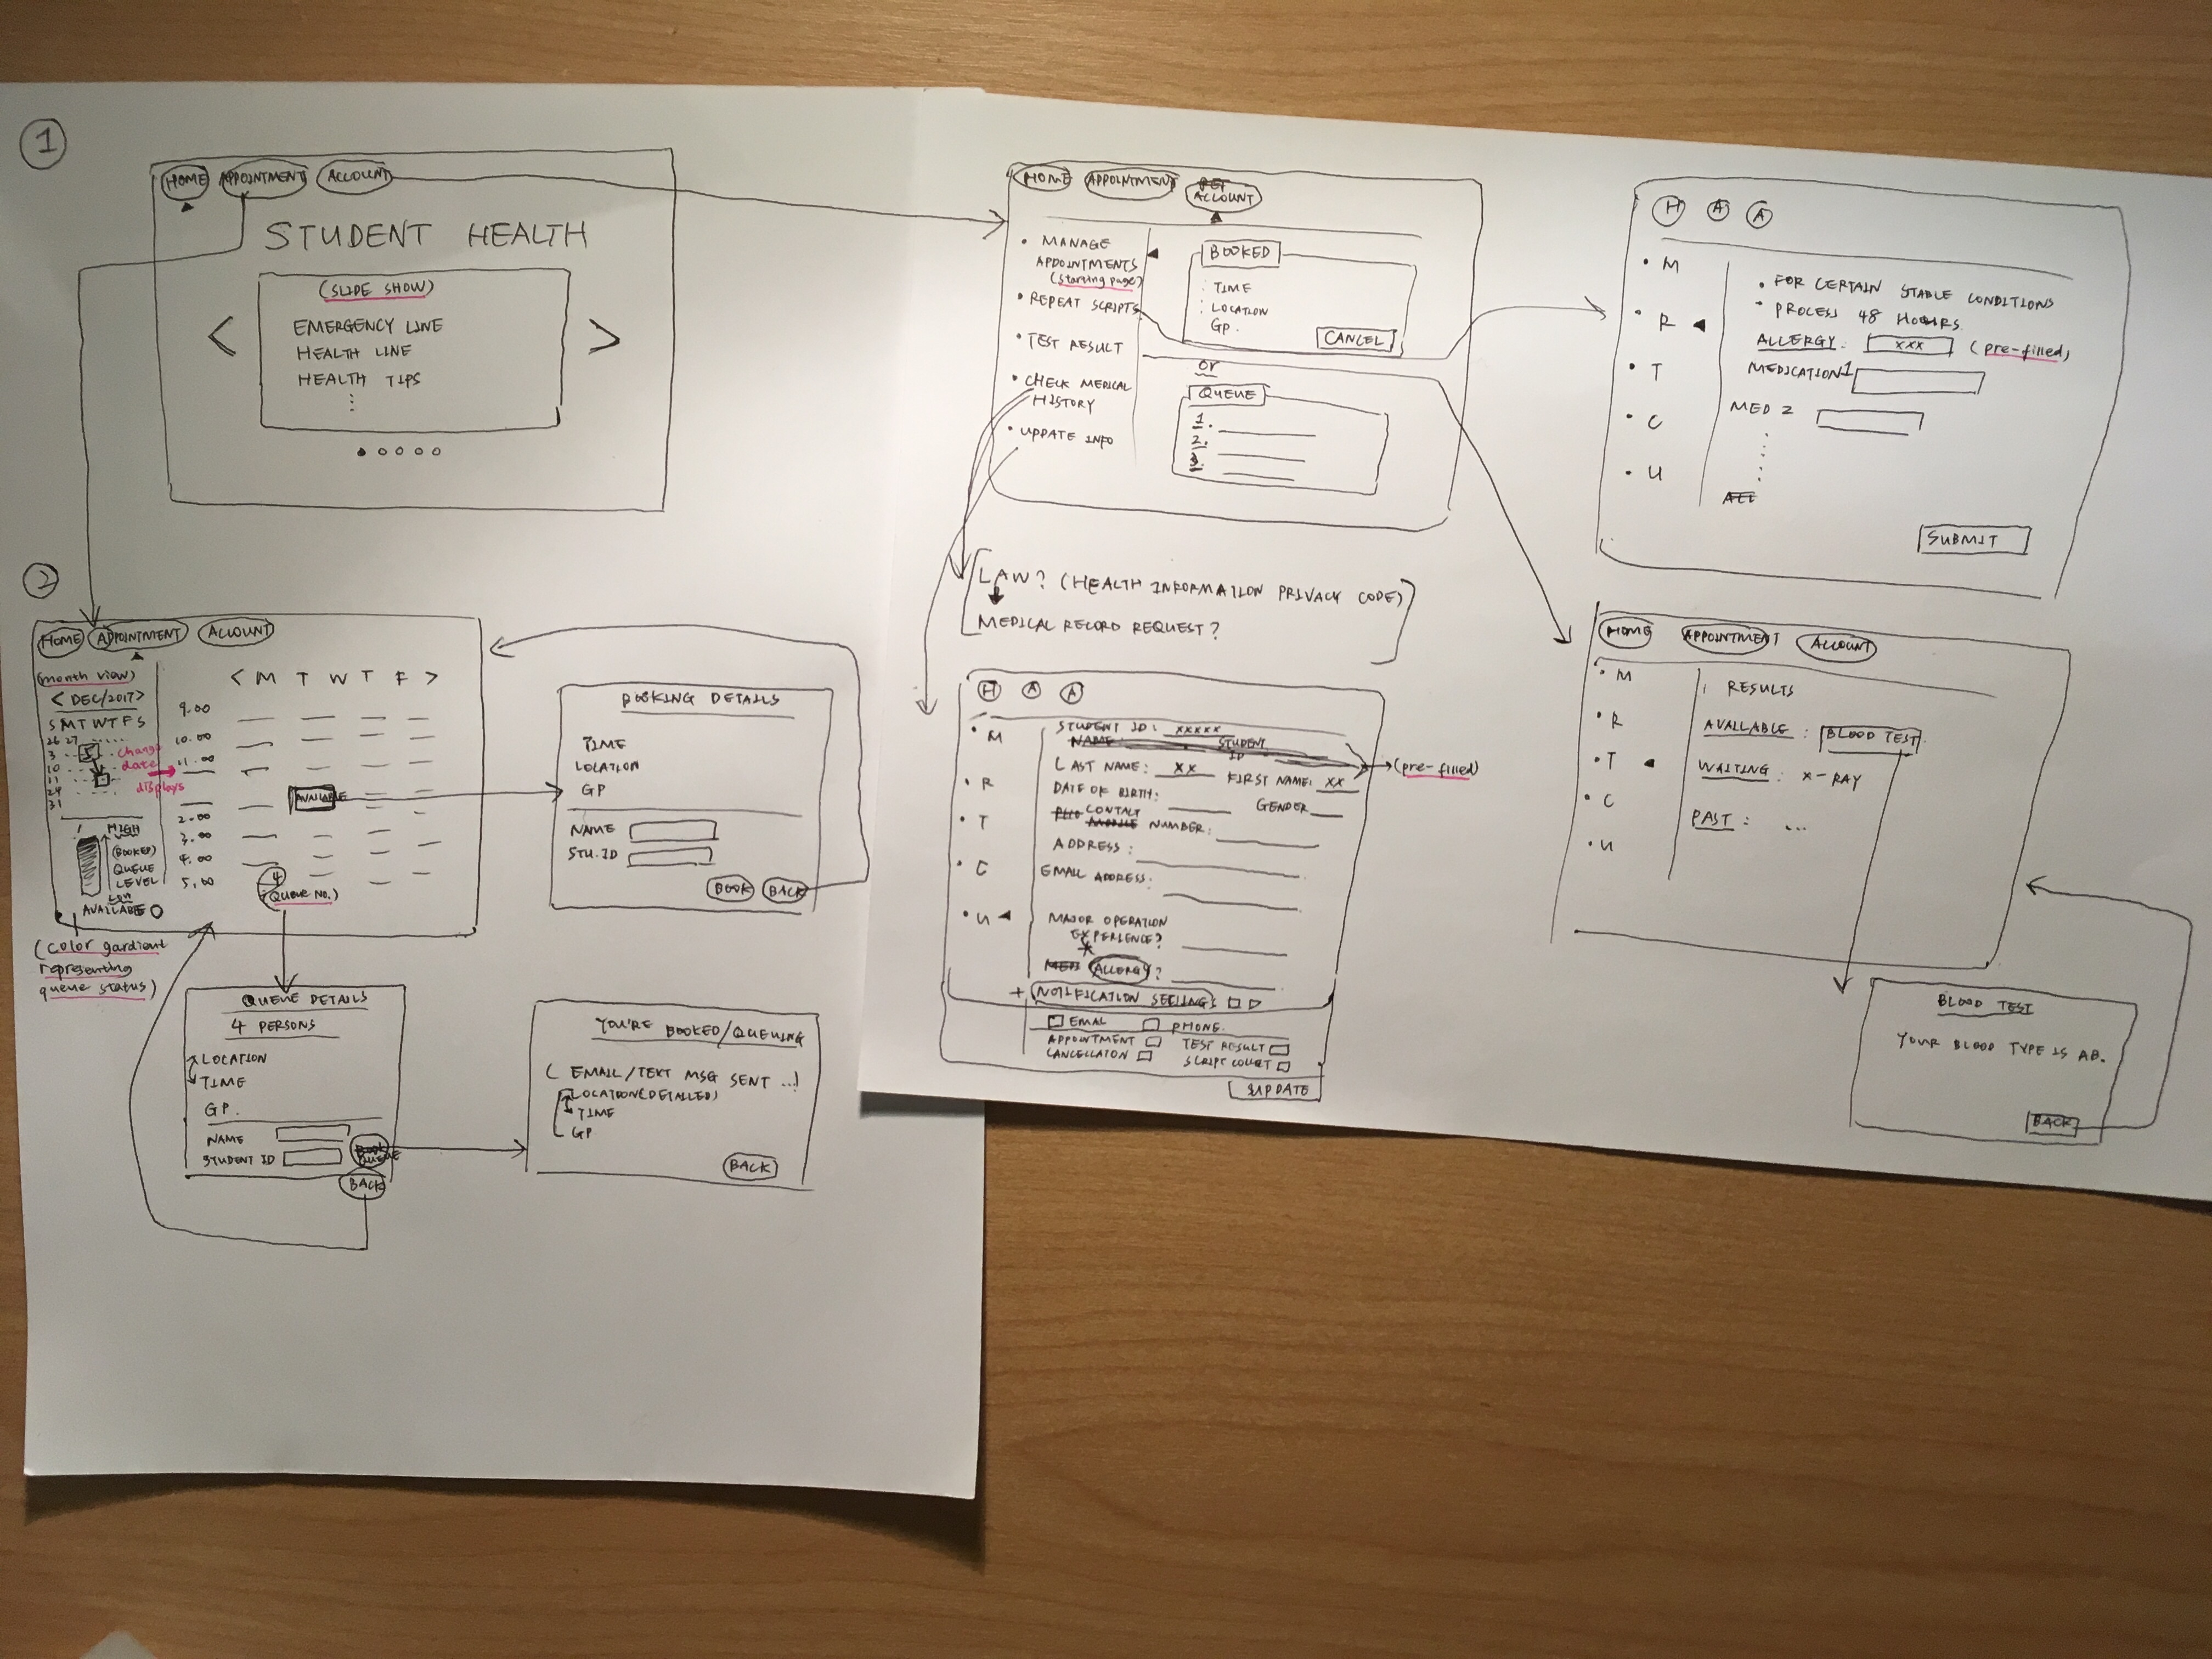 1
HOME APPOINTMENT ACCOUNT
STUDENT HEALTH
(SLIDE SHOW)
< >
EMERGENCY LINE
HEALTH LINE
HEALTH TIPS
2
HOME APPOINTMENT ACCOUNT
(month view)
< DEC/2017>
S M T W T F S
26 27
3 5
10
11
24
31
change
date
displays
HIGH
(BOOKED)
QUEUE
LEVEL
LOW
AVAILABLE
< M T W T F >
9.00
10.00
11.00
AVAILABLE
2.00
3.00
4.00
5.00
4
(QUEUE NO.)
(color gardient
representing
queue status)
BOOKING DETAILS
TIME
LOCATION
GP
NAME
STU.ID
BOOK BACK
QUEUE DETAILS
4 PERSONS
LOCATION
TIME
GP.
NAME
STUDENT ID
QUEUE
BACK
YOU'RE BOOKED/QUEUING
( EMAIL/TEXT MSG SENT ...)
LOCATION(DETAILED)
TIME
GP
BACK
HOME APPOINTMENT ACCOUNT
• MANAGE
APPOINTMENTS
(starting page)
• REPEAT SCRIPTS
• TEST RESULT
• CHECK MEDICAL
HISTORY
• UPDATE INFO
BOOKED
: TIME
: LOCATION
GP.
CANCEL
or
QUEUE
1.
2.
3.
LAW? (HEALTH INFORMATION PRIVACY CODE)
MEDICAL RECORD REQUEST?
H A A
• M
• R
• T
• C
• U
STUDENT ID: xxxxx
NAME: STUDENT
ID
LAST NAME: xx FIRST NAME: xx
(pre-filled)
DATE OF BIRTH: GENDER
CONTACT
MOBILE NUMBER:
ADDRESS:
EMAIL ADDRESS:
MAJOR OPERATION
EXPERIENCE?
MED ALLERGY?
+ NOTIFICATION SEETINGS
EMAIL PHONE.
APPOINTMENT TEST RESULT
CANCELLATON SCRIPT COLLECT
UPDATE
H A A
• M
• R
• T
• C
• U
• FOR CERTAIN STABLE CONDITIONS
• PROCESS 48 HOURS.
ALLERGY: xxx (pre-filled)
MEDICATION1
MED 2
SUBMIT
HOME APPOINTMENT ACCOUNT
• M
• R
• T
• C
• U
RESULTS
AVAILABLE : BLOOD TEST
WAITING : X-RAY
PAST : ...
BLOOD TEST
YOUR BLOOD TYPE IS AB.
BACK